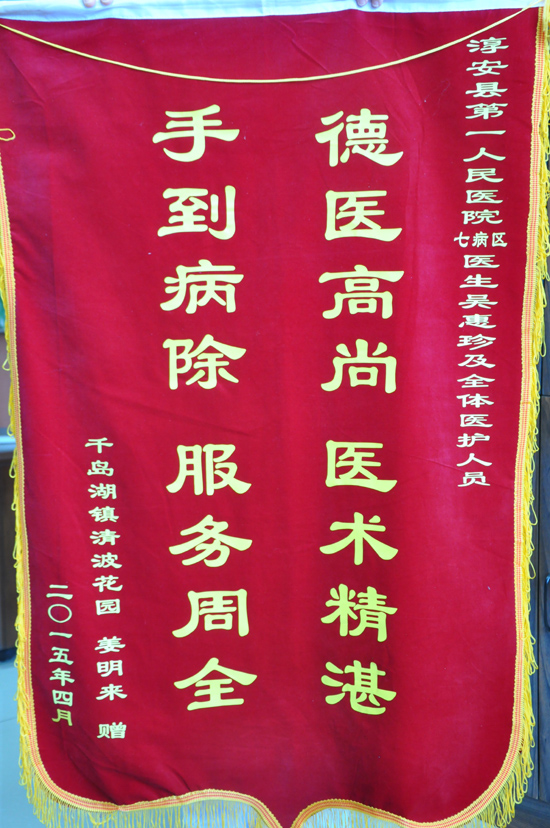 淳安县第一人民医院七病区医生吴惠珍及全体医护人员
德医高尚 医术精湛
手到病除 服务周全
千岛湖镇清波花园 姜明来 赠
二〇一五年四月